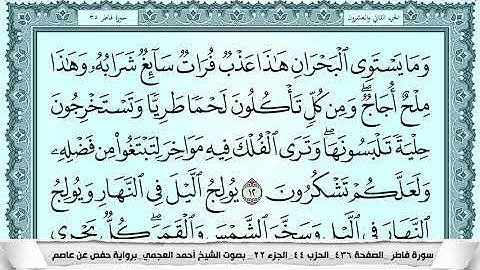 الجزء الثاني والعشرون سورة فاطر ٣٥
وَمَا يَسْتَوِى ٱلْبَحْرَانِ هَـٰذَا عَذْبٌ فُرَاتٌ سَآئِغٌ شَرَابُهُۥ وَهَـٰذَا
مِلْحٌ أُجَاجٌ ۖ وَمِن كُلٍّ تَأْكُلُونَ لَحْمًا طَرِيًّا وَتَسْتَخْرِجُونَ
حِلْيَةً تَلْبَسُونَهَا ۖ وَتَرَى ٱلْفُلْكَ فِيهِ مَوَاخِرَ لِتَبْتَغُوا۟ مِن فَضْلِهِۦ
وَلَعَلَّكُمْ تَشْكُرُونَ ١٢ يُولِجُ ٱلَّيْلَ فِى ٱلنَّهَارِ وَيُولِجُ
ٱلنَّهَارَ فِى ٱلَّيْلِ وَسَخَّرَ ٱلشَّمْسَ وَٱلْقَمَرَ ۖ كُلٌّ يَجْرِى
سورة فاطر الصفحة ٤٣٦ الحزب ٤٤ الجزء ٢٢ بصوت الشيخ أحمد العجمي برواية حفص عن عاصم